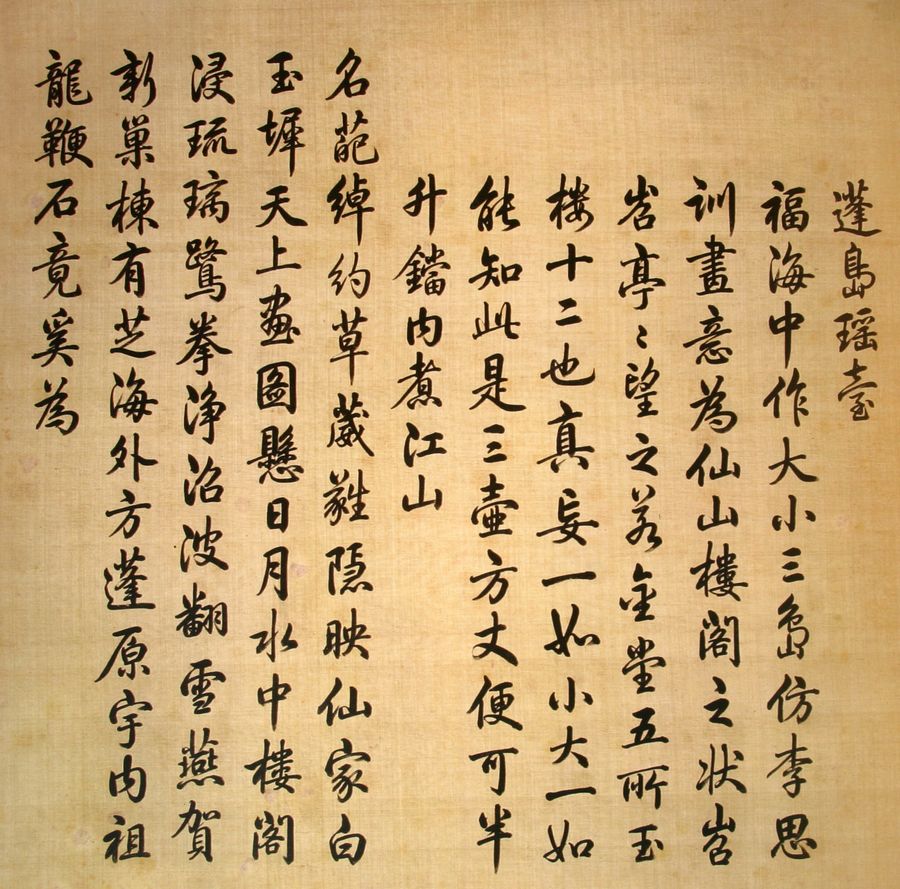 蓬島瑤臺
福海中作大小三島仿李思
訓畫意為仙山樓閣之狀岧
岧亭〻望之若金堂五所玉
樓十二也真妄一如小大一如
能知此是三壺方丈便可半
升鐺內煮江山
名葩綽約草葳蕤隱映仙家白
玉墀天上畫圖懸日月水中樓閣
浸琉璃鷺拳淨沼波翻雪燕賀
新巢棟有芝海外方蓬原宇內祖
龍鞭石竟奚為